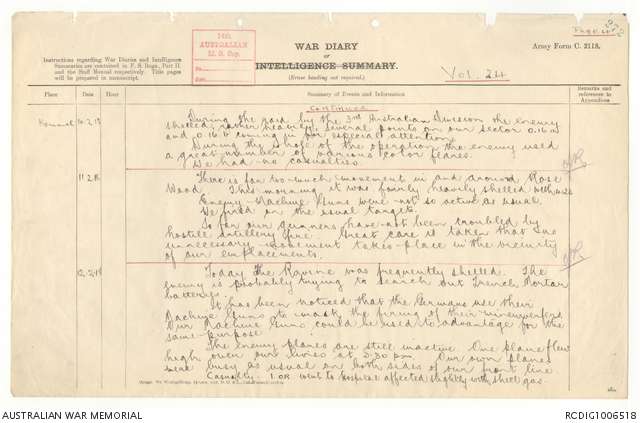 14th
AUSTRALIAN
M. G. Coy.
WAR DIARY
or
INTELLIGENCE SUMMARY.
(Erase heading not required.)
Instructions regarding War Diaries and Intelligence
Summaries are contained in F. S. Regs., Part II.
and the Staff Manual respectively. Title pages
will be prepared in manuscript.
Army Form C. 2118.
Vol. 24
Place
Date
Hour
Summary of Events and Information
Remarks and
references to
Appendices
CONTINUED
During the raid by the 3rd Australian Division the enemy
shelled, rather heavily, several points on our sector O.16.a
and O.16.b coming in for special attention.
During the whole of the operation the enemy used
a great number of various color flares.
We had no casualties.
There is far too much movement in and around Rose
Wood. This morning it was fairly heavily shelled with
Enemy Machine Guns were not so active as usual.
We fired on the usual targets.
So far our gunners have not been troubled by
hostile artillery fire. Great care is taken that no
unnecessary movement takes place in the vicinity
of our emplacements.
Today the Ravine was frequently shelled. The
enemy is probably trying to search out Trench Mortar
batteries.
It has been noticed that the Germans use their
Machine Guns to mask the firing of their minenwerfers.
Our Machine Guns could be used to advantage for the
same purpose.
The enemy planes are still inactive. One plane flew
high over our lines at 2.30 pm. Our own planes
were busy as usual on both sides of our front line.
Casualty - 1 OR went to hospital affected slightly with shell gas.
AUSTRALIAN WAR MEMORIAL
RCDIG1006518